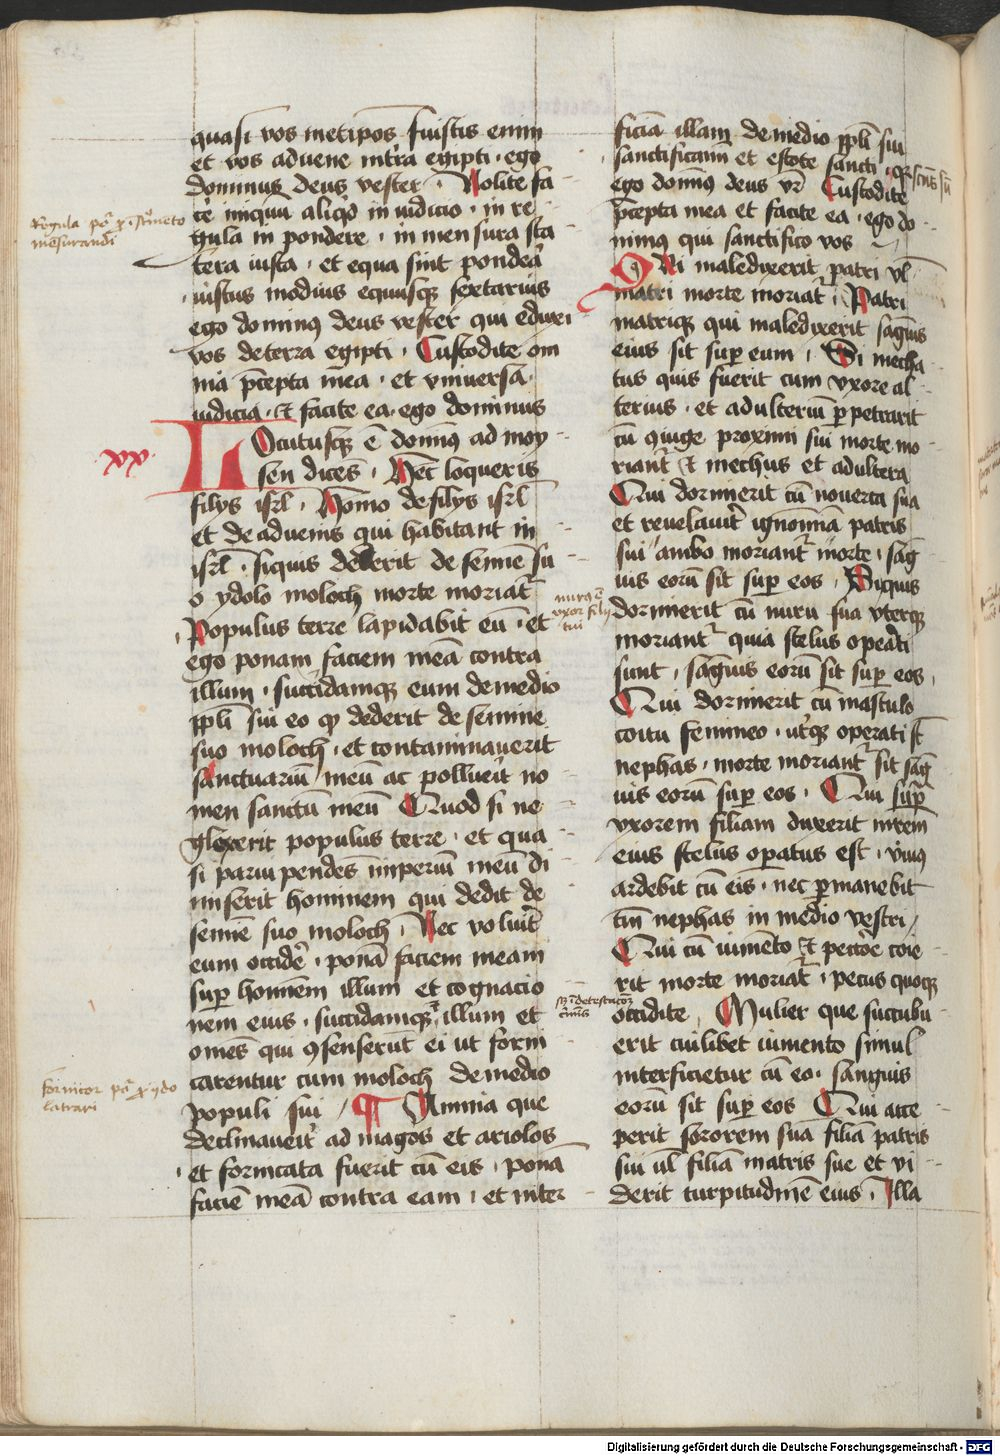 quasi vos metipos fuistis enim
et vos advene in t'ra egipti · ego
dominus deus vester · Nolite fa
ce' iniquū aliqd in iudicio · in re
gula in pondere · in mensura sta
tera iusta · et equa sint pondera
iustus modius equusq sextarius
ego dominus deus vester qui eduxi
vos de terra egipti · Custodite om
nia pcepta mea · et vniversa
iudicia · et facite ea · ego dominus
xx
LOcutusq ē domin9 ad moy
sen dicēs · Hec loqueris
filys isrl · Homo de filys isrl
et de advenis qui habitant in
isrl · siquis dederit de semīe su
o ydolo moloch morte moriat
Populus terre lapidabit eū · et
ego ponam faciem meā contra
illum · succidamq eum de medio
ppli sui eo q dederit de semine
suo moloch · et contaminaverit
sanctuariū meū ac polluerit no
men sanctū meū Quod si ne
glexerit populus terre · et qua
si parvipendēs imperiū meū di
miserit hominem qui dedit de
semīe suo moloch · Nec voluit
eum occidē · ponā faciem meam
sup hominem illum et cognacio
nem eius · succidamq illum et
omēs qui 9senserūt ei ut forni
carentur cum moloch de medio
populi sui ¶ Anima que
declinaverit ad magos et ariolos
et fornicata fuerit cū eis · ponā
faciē meā contra eam · et inter
Regula
mensurandi
fornicor
ydo
latrari
ficiā illam de medio ppli sui
sanctificamī et estote sancti · q scūs sū
ego domin9 deus vr Custodite
pcepta mea et facite ea · ego do
minus qui sanctifico vos
Qui maledixerit patri vl
matri morte moriat · Patri
matriq qui maledixerit sāguis
eius sit sup eum · Si mecha
tus quis fuerit cum vxore al
terius · et adulteriū ppetrarit
cū 9iuge proximi sui morte mo
riant et mechus et adultera
Qui dormierit cū noverca sua
et revelaverit ignomīā patris
sui ambo moriant morte · sāg
uis eorū sit sup eos · Siquis
dormierit cū nuru sua vterq
moriant quia scelus operati
sunt · sāguis eorū sit sup eos ·
Qui dormierit cū masculo
coitu femineo · ut'q operati st
nephas · morte moriant sit sāg
uis eorū sup eos · Qui supra
vxorem filiam duxerit mrem
eius scelus opatus est · vivus
ardebit cū eis · nec pmanebit
tm nephas in medio vestri
Qui cū iumēto et pecore coie
rit morte moriat · pecus quoq
occidite · Mulier que succubu
erit cuilibet iumento simul
interficietur cū eo · sanguis
eorū sit sup eos Qui acce
perit sororem suā filiā patris
sui ul filiā matris sue et vi
derit turpitudinē eius · Illa
nurus ē
vxor filij
tui
Digitalisierung gefördert durch die Deutsche Forschungsgemeinschaft · DFG